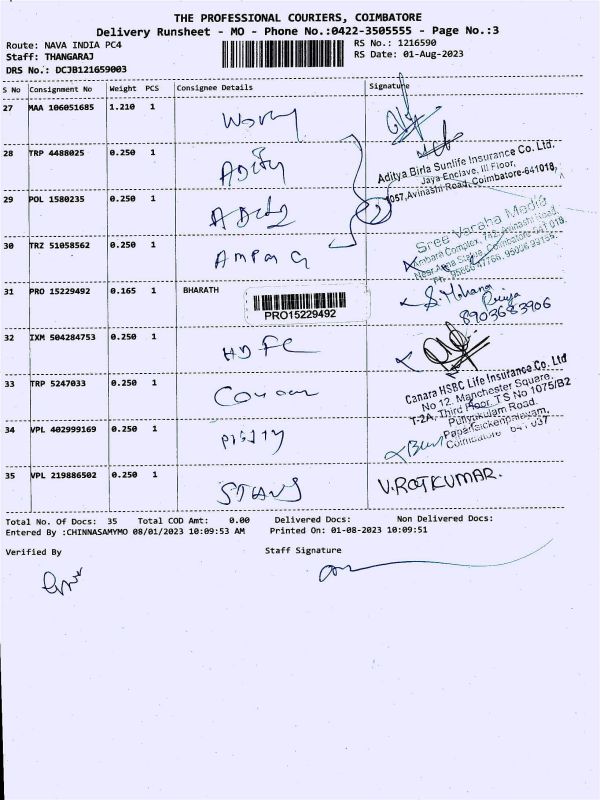 THE PROFESSIONAL COURIERS, COIMBATORE
Delivery Runsheet - MO - Phone No.:0422-3505555 - Page No.:3
Route: NAVA INDIA PC4
RS No.: 1216590
Staff: THANGARAJ
RS Date: 01-Aug-2023
DRS No.: DCJB121659003
S No Consignment No Weight PCS Consignee Details Signature
27 MAA 106051685 1.210 1
28 TRP 4488025 0.250 1 Aditya
Aditya Birla Sunlife Insurance Co. Ltd.
Jaya Enclave, III Floor,
1057, Avinashi Road, Coimbatore-641018,
29 POL 1580235 0.250 1
30 TRZ 51058562 0.250 1
Sree Varaha Media
Ambara Complex, 742, Avinashi Road,
31 PRO 15229492 0.165 1 BHARATH
PRO15229492
S. Mohana
8903683906
32 IXM 504284753 0.250 1 HDFC
33 TRP 5247033 0.250 1
Canara HSBC Life Insurance Co. Ltd
No 12, Manchester Square,
T-2A, Third Floor, T S No 1075/B2
Puliyakulam Road,
Papanaickenpalayam,
34 VPL 402999169 0.250 1
35 VPL 219886502 0.250 1
Total No. Of Docs: 35 Total COD Amt: 0.00 Delivered Docs: Non Delivered Docs:
Entered By :CHINNASAMYMO 08/01/2023 10:09:53 AM Printed On: 01-08-2023 10:09:51
Verified By
Staff Signature